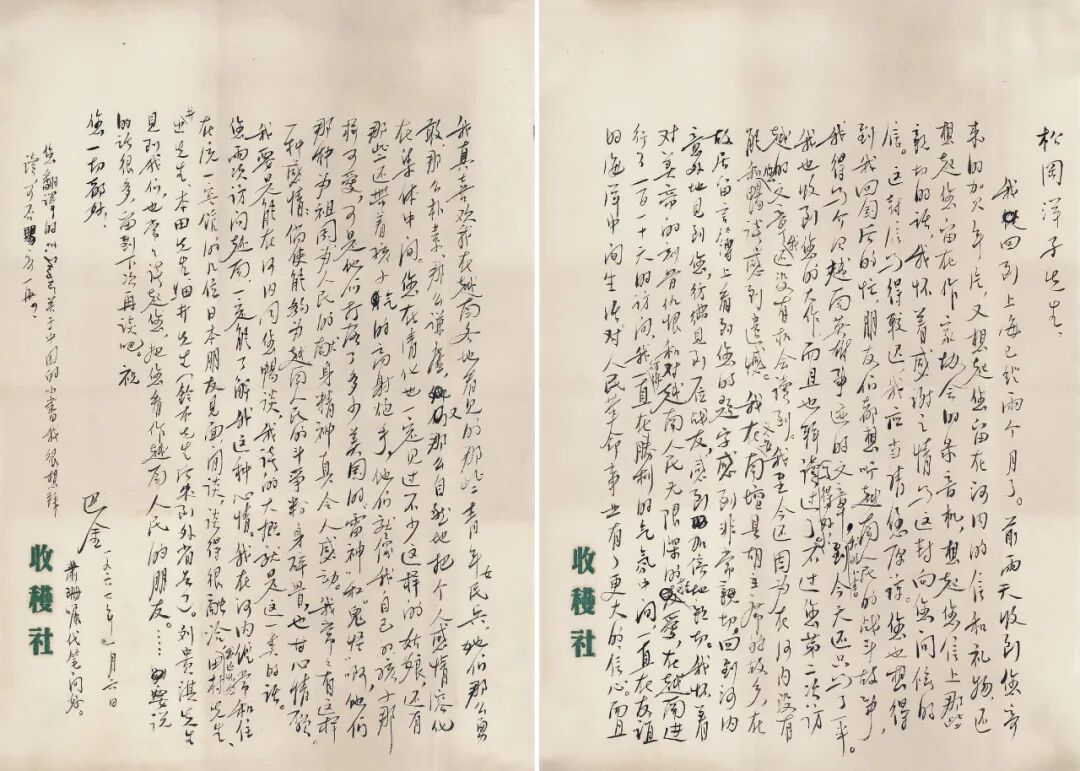 松岡洋子先生:
我回到上海已经两个月了。前两天收到您寄
来的贺年片,又想起您留在河内的信和礼物,还
想起您留在作家协会的录音机,想起您信上那些
亲切的话,我怀着感谢之情写这封向您问候的
信。这封信写得较迟,我应当请您原谅。您也想得
到我回国后的忙,朋友们都想听越南人民的战斗故事,
我得写越南英雄事迹的文章,到今天还只写了一半。
我也收到您的大作,而且也拜读过了,不过您第二次访
越的文章我还没有机会读到。我至今还因为在河内没有
能和您畅谈感到遗憾。我在南坛县胡主席的故乡,在
故居留言簿上看到您的题字感到非常亲切,回到河内
意外地见到您,仿佛见到老战友,感到加倍地亲切。我怀着
对美帝的刻骨仇恨和对越南人民无限深的爱,在越南进
行了一百一十天的访问,我一直在胜利的气氛中间,一直在友谊
的海洋中间生活,对人民革命事业有了更大的信心,而且
收穫社
我真喜欢我在越南各地看见的那些青年女民兵,她们那么勇
敢,那么朴素,那么谦虚,又那么自然地把个人感情溶化
在集体中间。您在清化也一定见过不少这样的姑娘,还有
那些还带着孩子气的高射炮手,他们就像我自己的孩子那
样可爱,可是他们打落了多少美国的“雷神”和“鬼怪”啊,他们
那种为祖国为人民的献身精神真令人感动。我常常有这样
一种感情:倘使能够为越南人民的斗争粉身碎骨,也甘心情愿。
我要是能在河内同您畅谈,我谈的大概就是这一类的话。
您两次访问越南,一定能了解我这种心情。我在河内优常和住
在统一宾馆的几位日本朋友见面闲谈,谈得很融洽,田村先生、
井先生、本田先生、细井先生(鈴木先生后来到外省去了)。列贵淇先生
见到我们,也常常谈起您,把您看作越南人民的朋友。……要说
的话很多,留到下次再谈吧。祝
您一切都好。
巴金
一九六七年一月六日
萧珊嘱代笔问好。
您翻譯的关于中国的小書我很想拜
读,可不賜寄一册?
收穫社